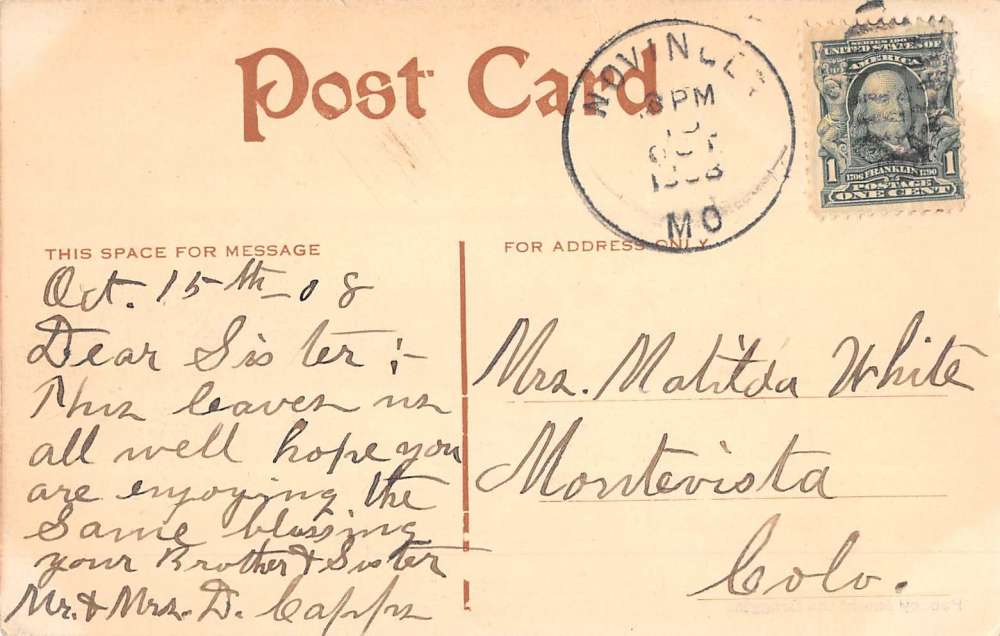 Post Card
NOVINGER
PM
15
OCT
1908
MO
SERIES 1902
UNITED STATES OF
AMERICA
1 1706 FRANKLIN 1790 1
POSTAGE
ONE CENT
THIS SPACE FOR MESSAGE
Oct. 15th-08
Dear Sister :-
This leaves us
all well hope you
are enjoying the
Same blessing
your Brother & Sister
Mr. & Mrs. D. Capps
FOR ADDRESS ONLY
Mrs. Matilda White
Montevista
Colo.